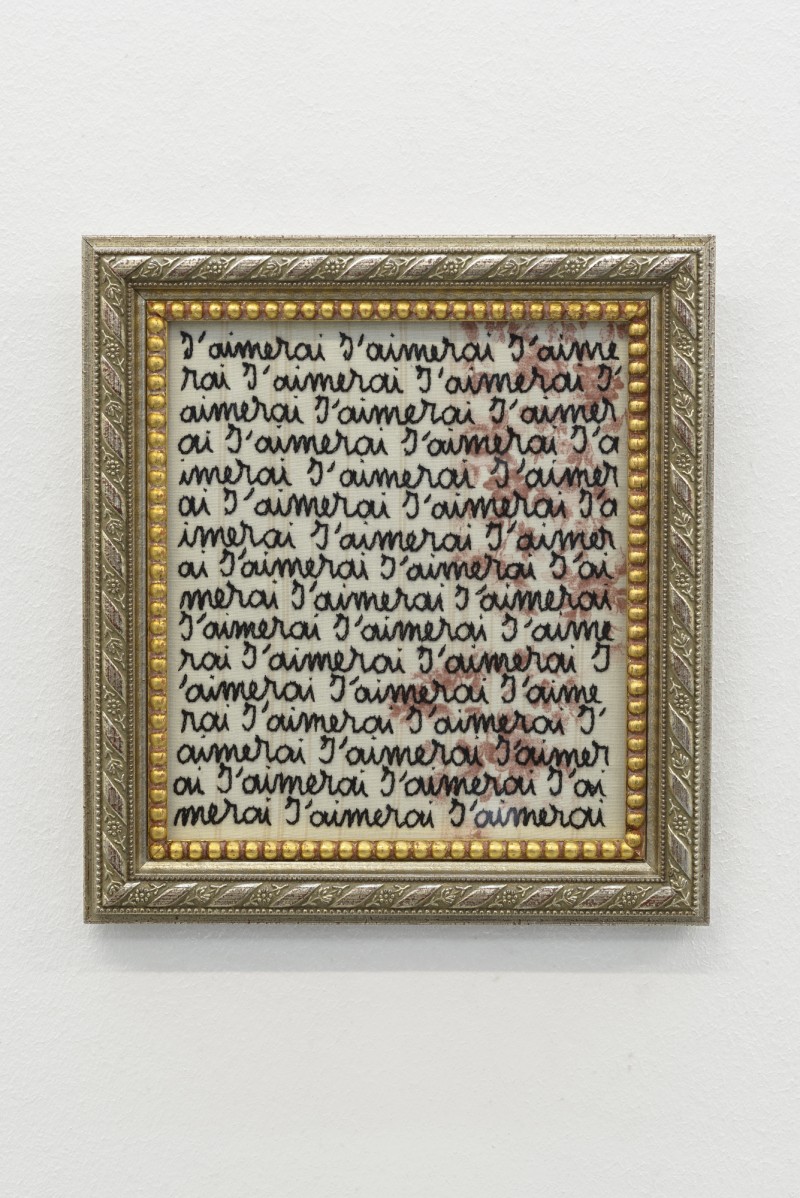 J'aimerai J'aimerai J'aime
rai J'aimerai J'aimerai J'
aimerai J'aimerai J'aimer
ai J'aimerai J'aimerai J'a
imerai J'aimerai J'aimer
ai J'aimerai J'aimerai J'a
imerai J'aimerai J'aimer
ai J'aimerai J'aimerai J'ai
merai J'aimerai J'aimerai
J'aimerai J'aimerai J'aime
rai J'aimerai J'aimerai J
'aimerai J'aimerai J'aime
rai J'aimerai J'aimerai J'
aimerai J'aimerai J'aimer
ai J'aimerai J'aimerai J'ai
merai J'aimerai J'aimerai